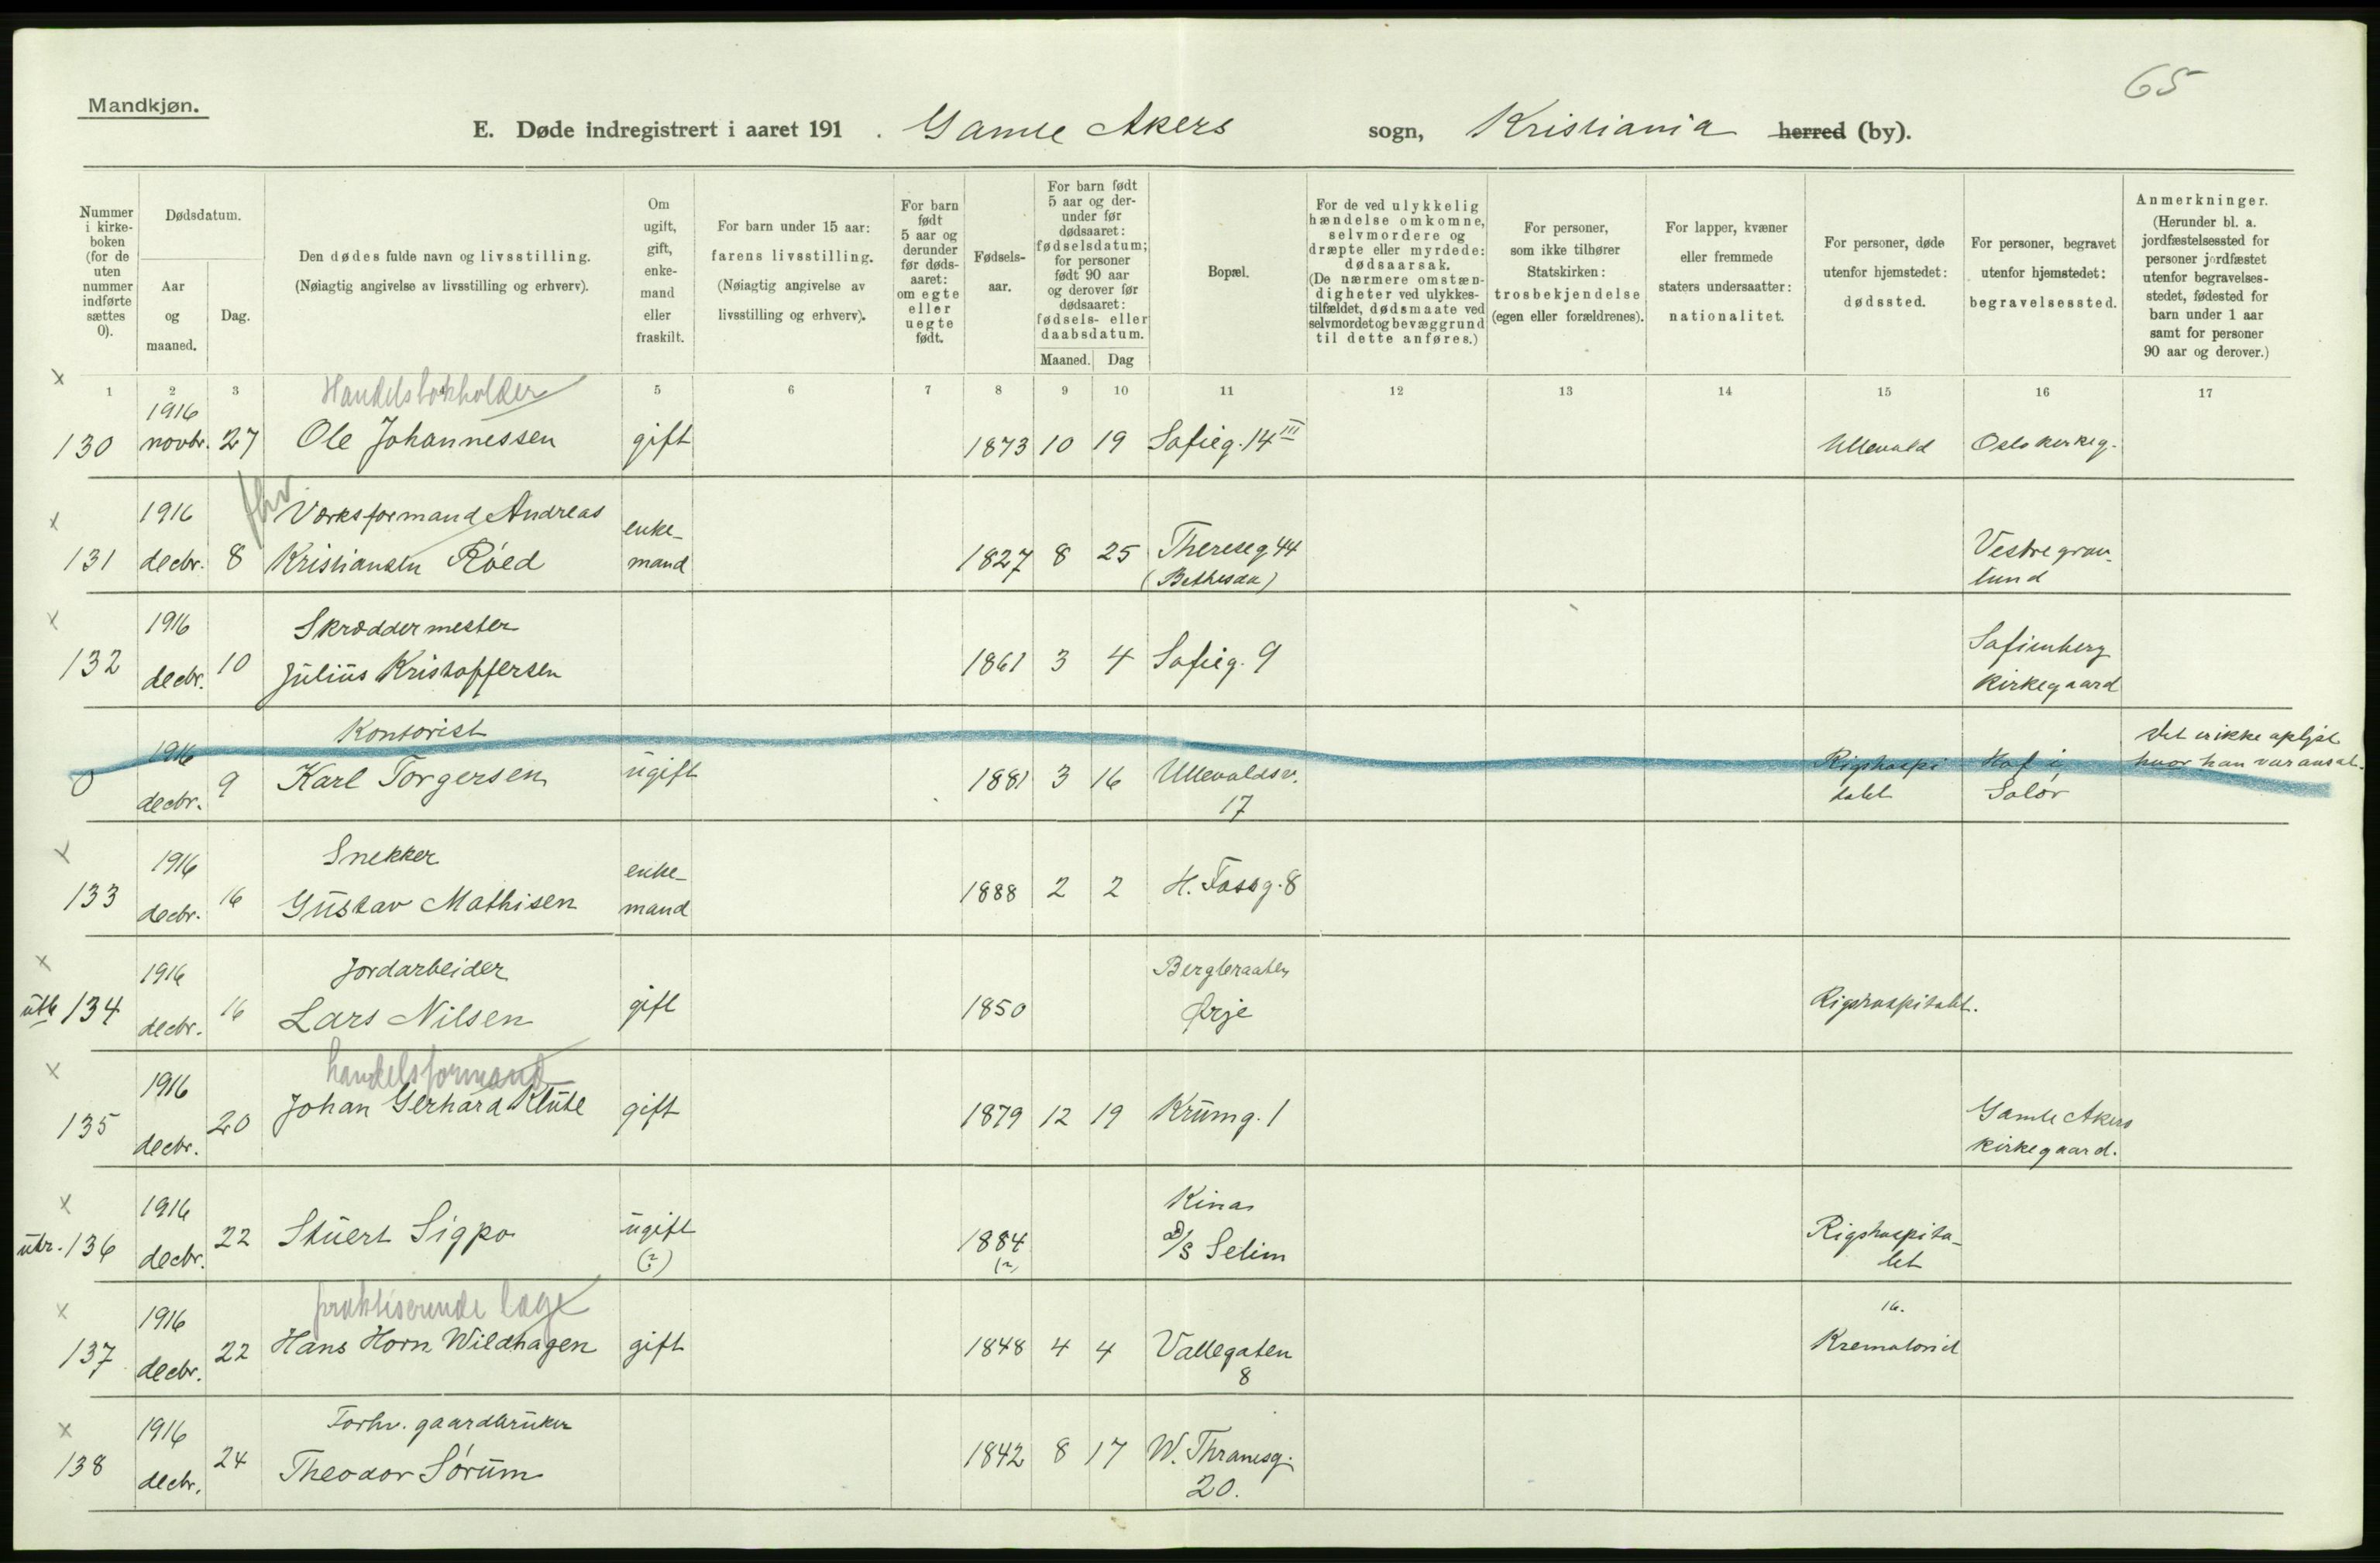 65
Mandkjøn.
E. Døde indregistrert i aaret 191 . Gamle Akers sogn, Kristiania herred (by).
Nummer i kirke-boken (for de uten nummer indførte sættes 0).
Dødsdatum.
Aar og maaned.
Dag.
Den dødes fulde navn og livsstilling.
(Nøiagtig angivelse av livsstilling og erhverv).
Om ugift, gift, enke-mand eller fraskilt.
For barn under 15 aar:
farens livsstilling.
(Nøiagtig angivelse av livsstilling og erhverv).
For barn født 5 aar og derunder før døds-aaret: om egte eller uegte født.
Fødsels-aar.
For barn født 5 aar og der-under før dødsaaret: fødselsdatum; for personer født 90 aar og derover før dødsaaret: fødsels- eller daabsdatum.
Maaned. Dag
Bopæl.
For de ved ulykkelig hændelse omkomne, selvmordere og dræpte eller myrdede: dødsaarsak.
(De nærmere omstæn-digheter ved ulykkes-tilfældet, dødsmaate ved selvmordet og bevæggrund til dette anføres.)
For personer, som ikke tilhører Statskirken: trosbekjendelse (egen eller forældrenes).
For lapper, kvæner eller fremmede staters undersaatter: nationalitet.
For personer, døde utenfor hjemstedet: dødssted.
For personer, begravet utenfor hjemstedet: begravelsessted.
Anmerkninger.
(Herunder bl. a. jordfæstelsessted for personer jordfæstet utenfor begravelses-stedet, fødested for barn under 1 aar samt for personer 90 aar og derover.)
1 2 3 5 6 7 8 9 10 11 12 13 14 15 16 17
x
Handelsbokholder
1916
130 novbr. 27 Ole Johannessen gift 1873 10 19 Sofieg. 14 III Ullevald Oslo kirkeg.
x
fhv
1916 Værksformand Andreas enke-
131 decbr. 8 Kristiansen Röed mand 1827 8 25 Thereseg. 44 Vestre grav-
(Bethesda) lund
x
1916 Skræddermester
132 decbr. 10 Julius Kristoffersen 1861 3 4 Sofieg. 9 Sofienberg
kirkegaard
1916 Kontorist Det er ikke oplyst
0 decbr. 9 Karl Torgersen ugift 1881 3 16 Ullevaldsv. Rigshospi Hof i hvor han var ansat.
17 talet Solör
x
1916 Snekker enke-
133 decbr. 16 Gustav Mathisen mand 1888 2 2 H. Fossg. 8
x
1916 Jordarbeider
134 decbr. 16 Lars Nilsen gift 1850 Ørje Rigshospitalet.
x
1916 handelsformand
135 decbr. 20 Johan Gerhard Klute gift 1879 12 19 Krumg. 1 Gamle Akers
kirkegaard.
x
1916 Kina
utr. 136 decbr. 22 Stuert Sigpo ugift 1884 D/S Selim Rigshospita-
(?) (?) let
x
1916 praktiserende læge
137 decbr. 22 Hans Horn Wildhagen gift 1848 4 4 Vallegaten Krematoriet
8
x
1916 Forhv. gaardbruker
138 decbr. 24 Theodor Sörum 1842 8 17 W. Thranesg.
20.